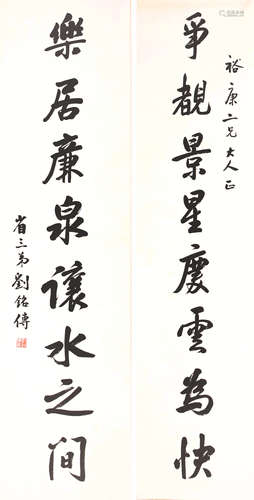 裕康二兄大人正
争觀景星慶雲為快
樂居廉泉讓水之间
省三弟劉銘傳